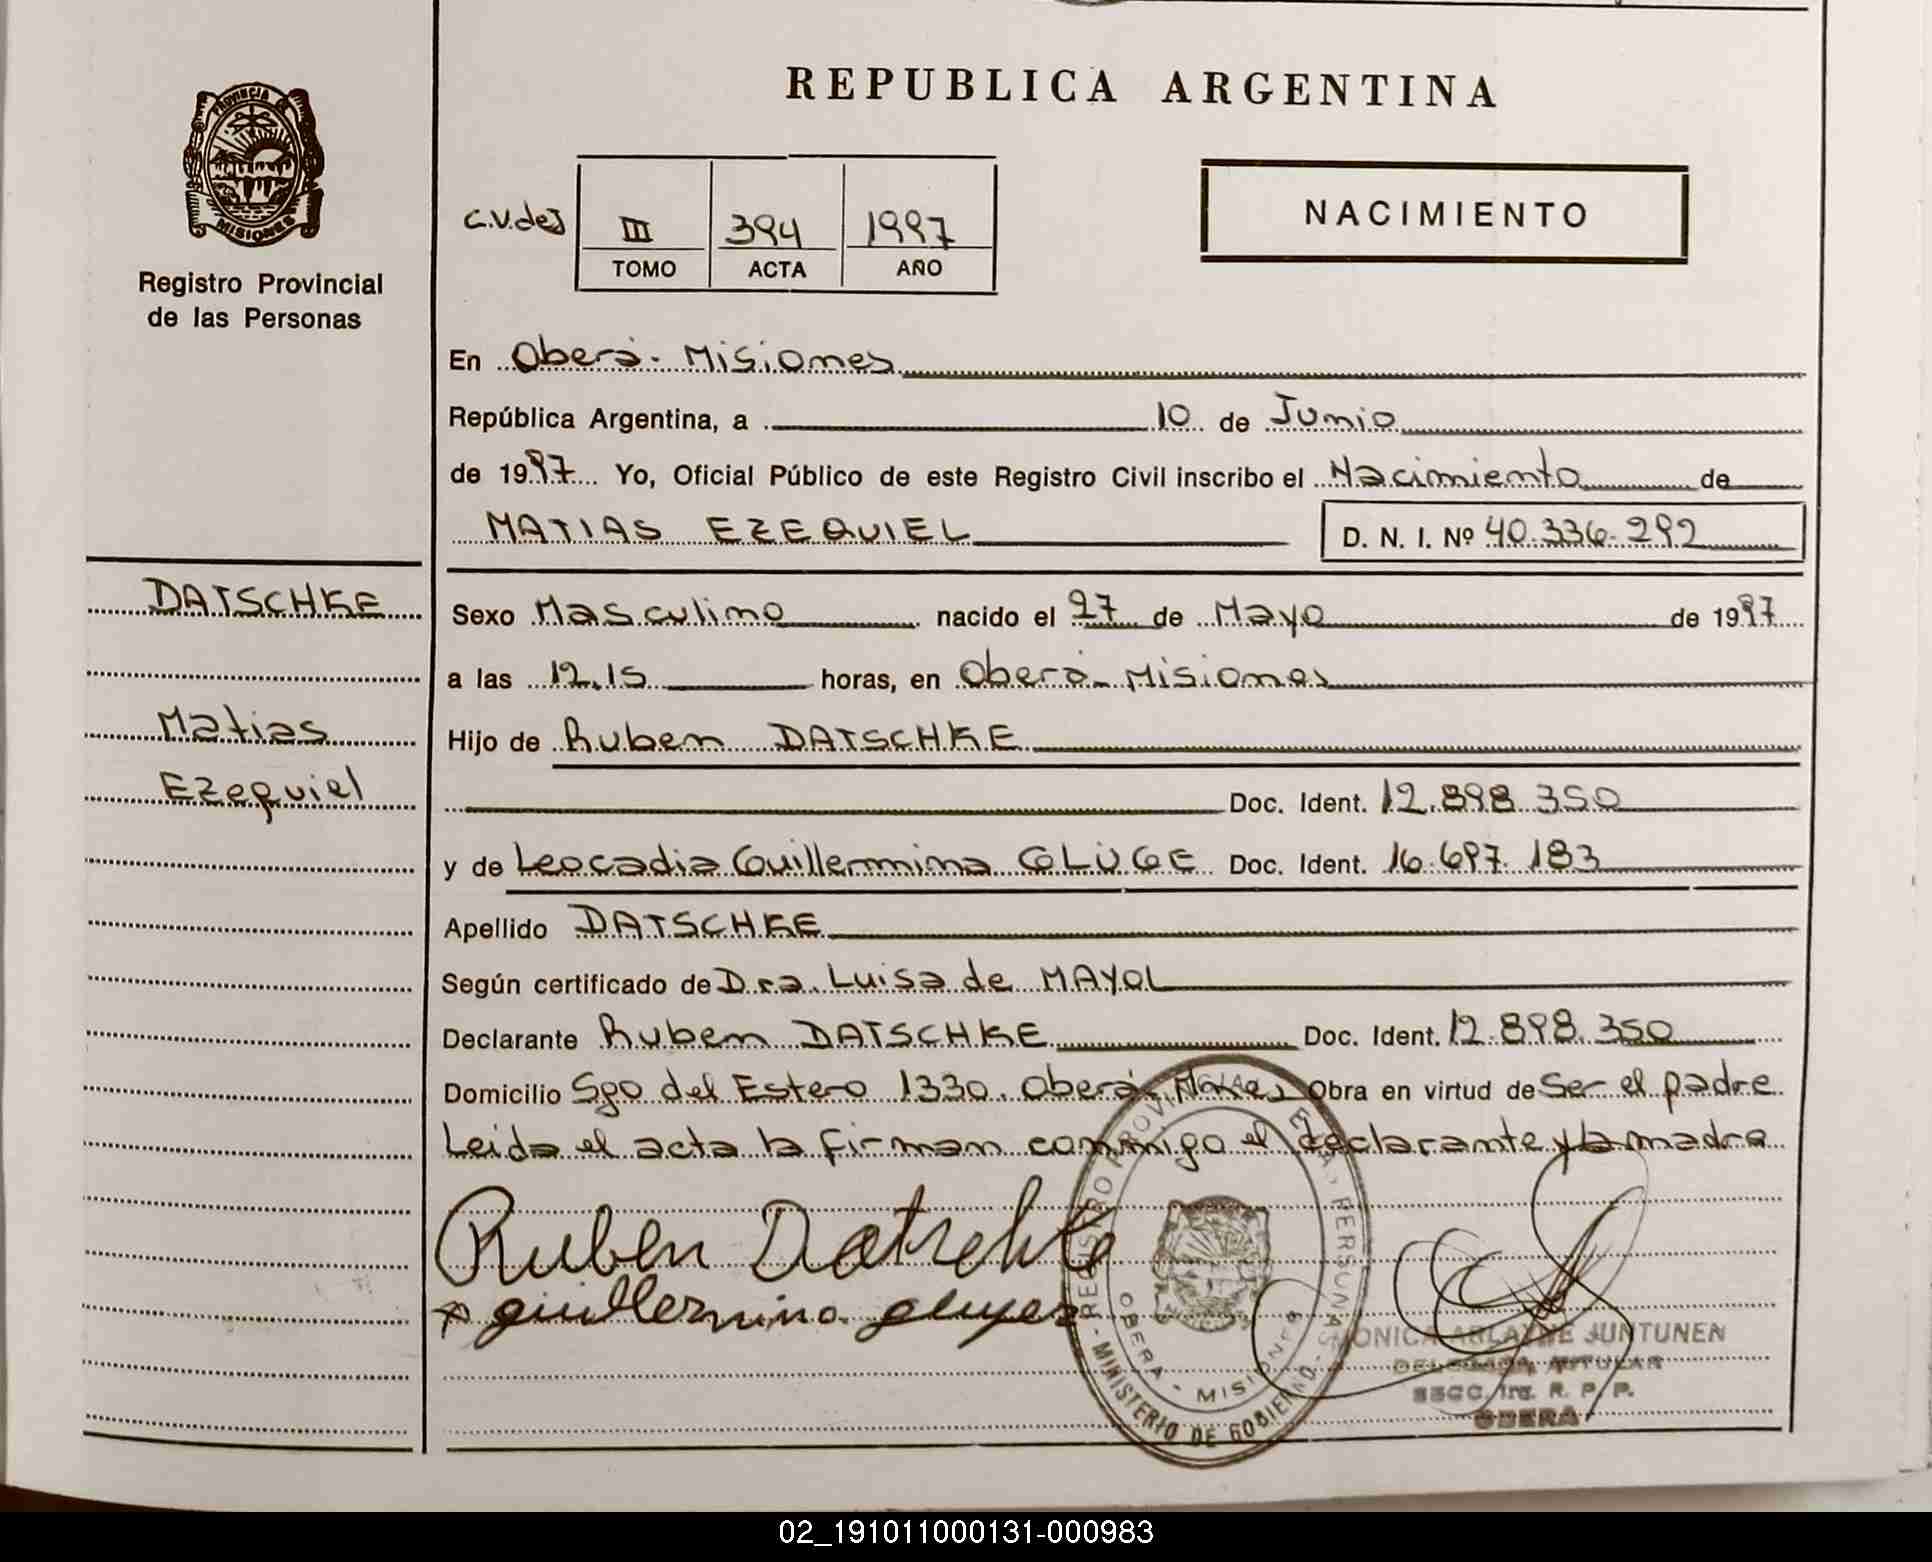 REPUBLICA ARGENTINA
PROVINCIA DE
MISIONES
Registro Provincial
de las Personas
c.v.de J
III 394 1997
TOMO ACTA AÑO
NACIMIENTO
En Oberá - Misiones
República Argentina, a 10 de Junio
de 1997 Yo, Oficial Público de este Registro Civil inscribo el Nacimiento de
MATIAS EZEQUIEL D. N. I. Nº 40.336.292
DATSCHKE
Matias
Ezequiel
Sexo Masculino nacido el 27 de Mayo de 1997
a las 12,15 horas, en Oberá - Misiones
Hijo de Ruben DATSCHKE
Doc. Ident. 12.898.350
y de Leocadia Guillermina GLÜGE Doc. Ident. 16.697.183
Apellido DATSCHKE
Según certificado de Dra. Luisa de MAYOL
Declarante Ruben DATSCHKE Doc. Ident. 12.898.350
Domicilio Sgo del Estero 1330. Oberá, Mnes Obra en virtud de Ser el padre
Leida el acta la firman conmigo el declarante y la madre
Ruben Datschke
guillermina
REGISTRO PROVINCIAL DE LAS PERSONAS
- MINISTERIO DE GOBIERNO -
OBERA - MISIONES
MONICA ARLAYNE JUNTUNEN
DELEGADA TITULAR
SECC. 1ra. R. P. P.
OBERA
02_191011000131-000983